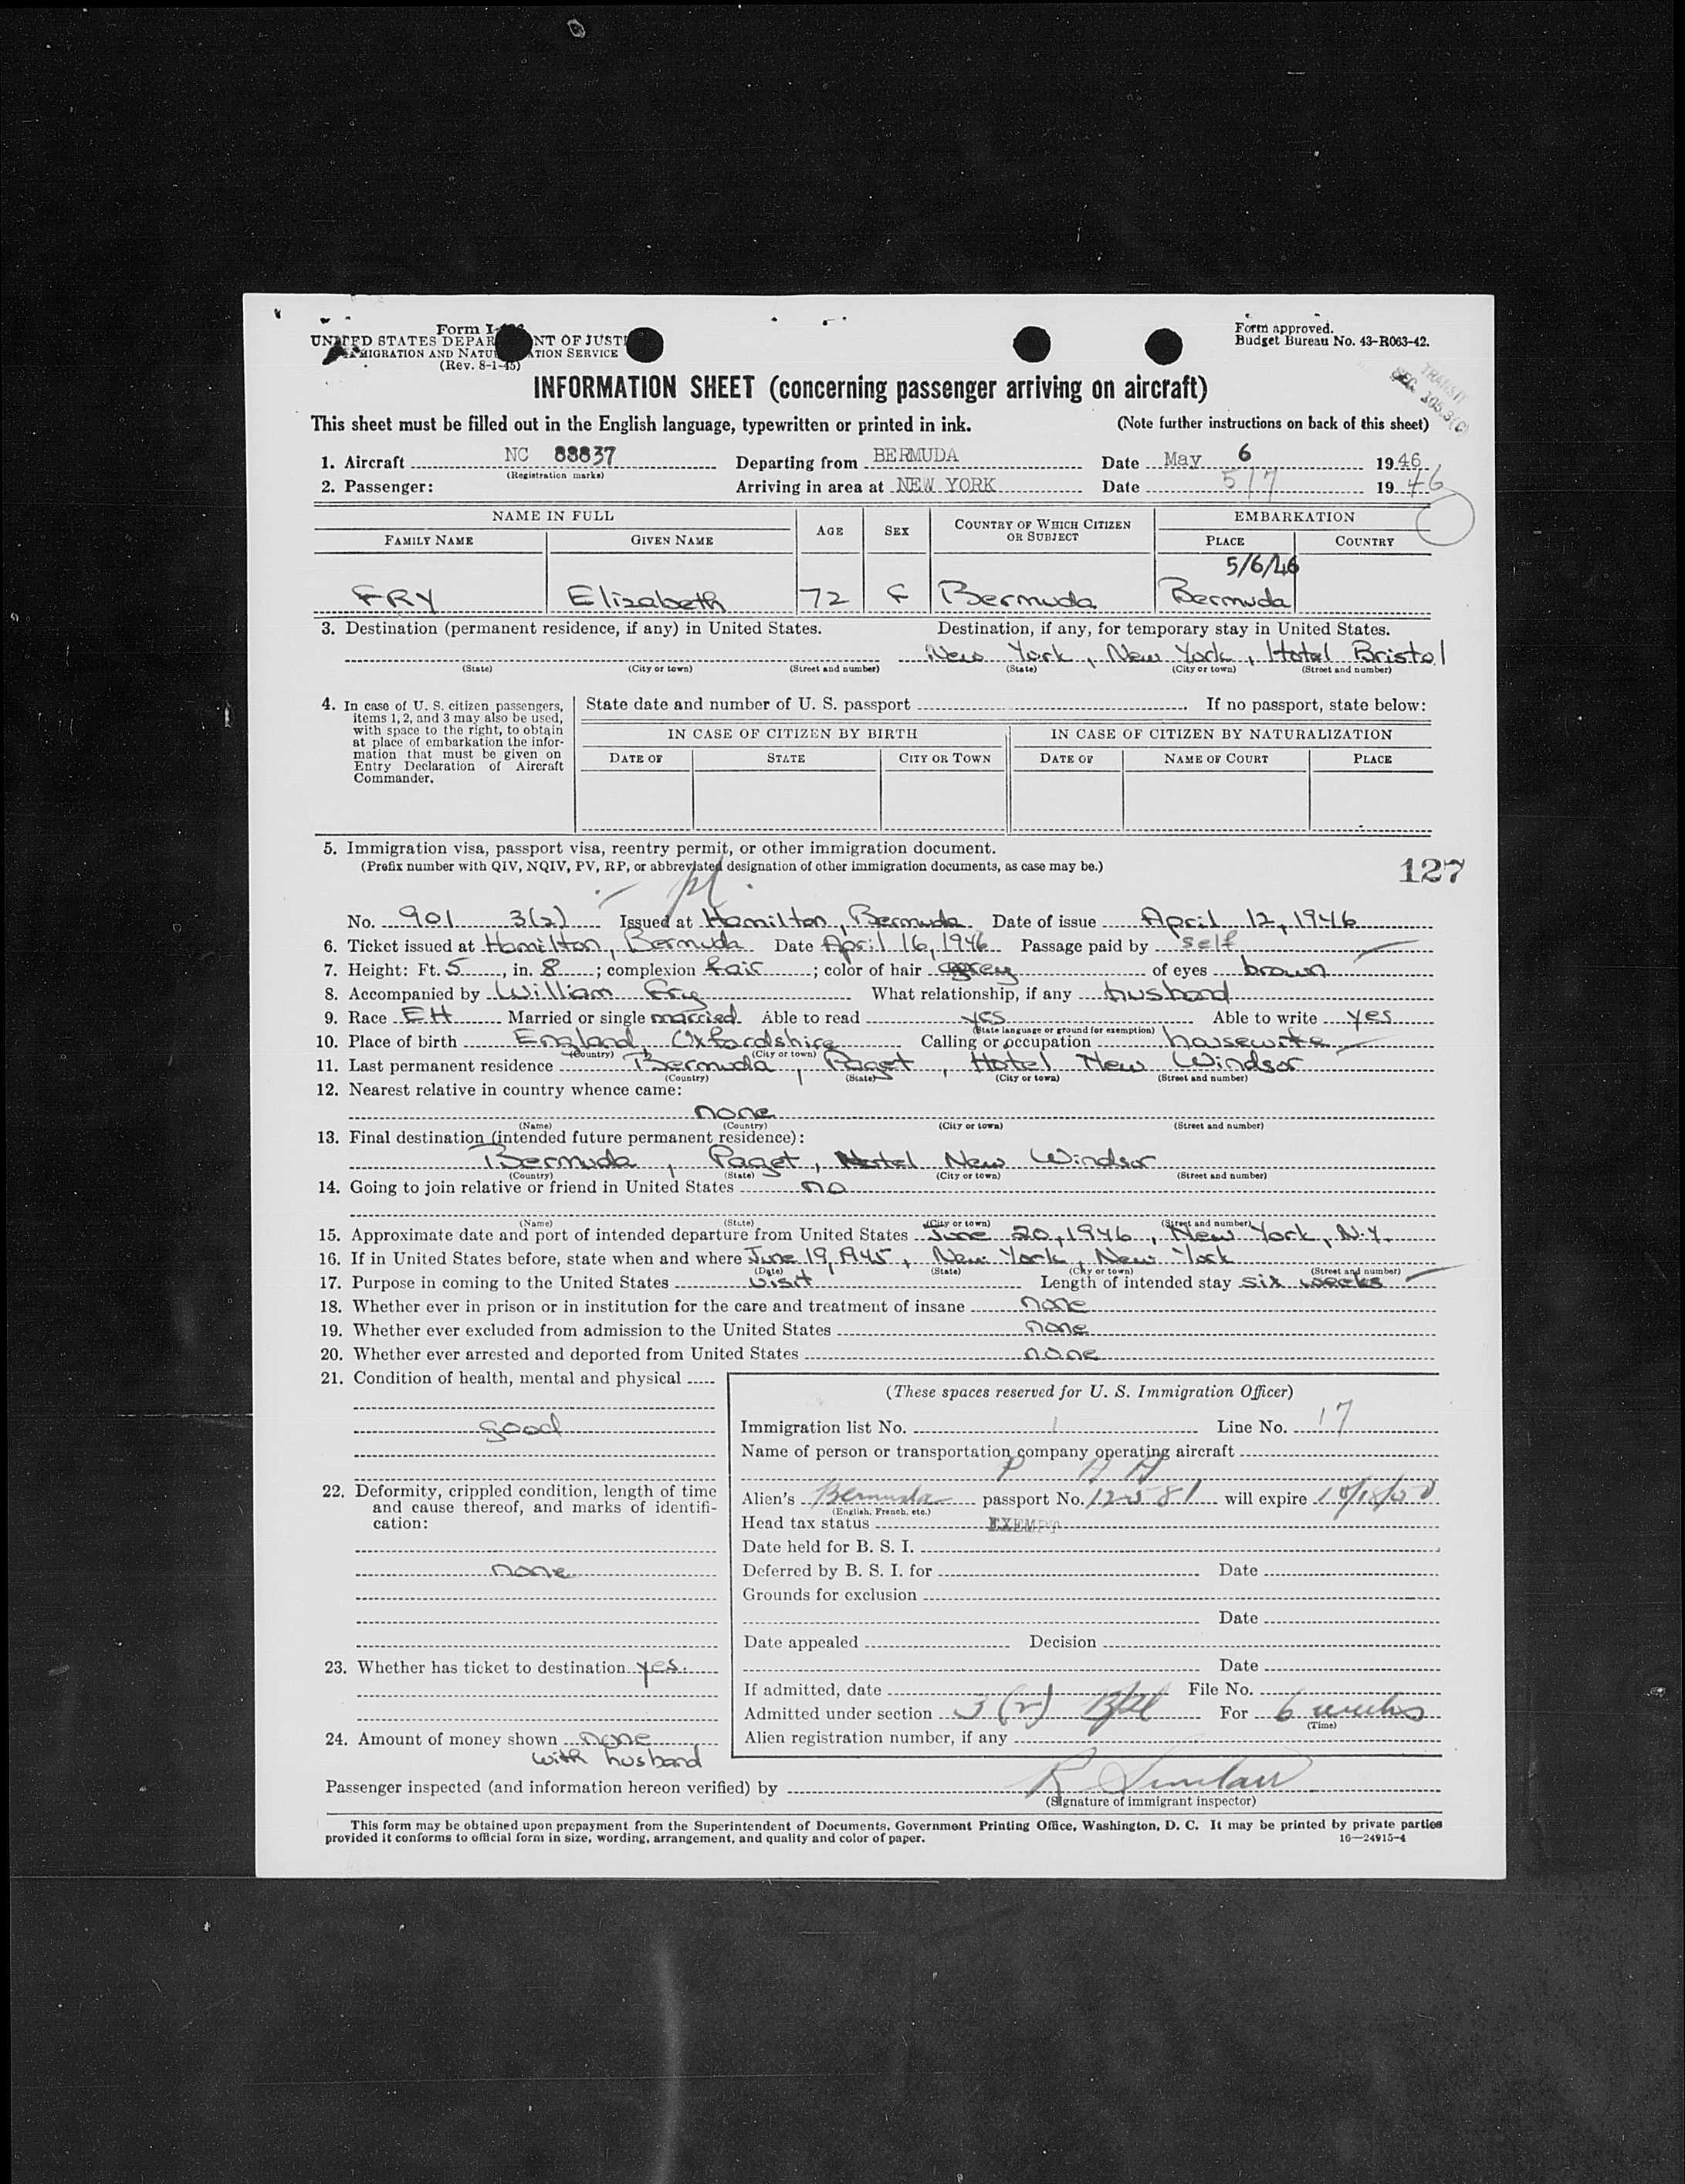 Form I-
UNITED STATES DEPAR NT OF JUSTI
MIGRATION AND NATU ATION SERVICE
(Rev. 8-1-45)
Form approved.
Budget Bureau No. 43-R063-42.
TRANSIT
SEC. 305.3(C)
INFORMATION SHEET (concerning passenger arriving on aircraft)
This sheet must be filled out in the English language, typewritten or printed in ink. (Note further instructions on back of this sheet)
1. Aircraft NC 88837 Departing from BERMUDA Date May 6 1946
(Registration marks)
2. Passenger: Arriving in area at NEW YORK Date 5/7 1946
NAME IN FULL AGE SEX COUNTRY OF WHICH CITIZEN OR SUBJECT EMBARKATION
FAMILY NAME GIVEN NAME PLACE COUNTRY
5/6/46
FRY Elizabeth 72 F Bermuda Bermuda
3. Destination (permanent residence, if any) in United States. Destination, if any, for temporary stay in United States.
New York, New York, Hotel Bristol
(State) (City or town) (Street and number) (State) (City or town) (Street and number)
4. In case of U. S. citizen passengers, items 1, 2, and 3 may also be used, with space to the right, to obtain at place of embarkation the information that must be given on Entry Declaration of Aircraft Commander.
State date and number of U. S. passport If no passport, state below:
IN CASE OF CITIZEN BY BIRTH IN CASE OF CITIZEN BY NATURALIZATION
DATE OF STATE CITY OR TOWN DATE OF NAME OF COURT PLACE
5. Immigration visa, passport visa, reentry permit, or other immigration document.
(Prefix number with QIV, NQIV, PV, RP, or abbreviated designation of other immigration documents, as case may be.)
127
No. 901 3(2) Issued at Hamilton, Bermuda Date of issue April 12, 1946
6. Ticket issued at Hamilton, Bermuda Date April 16, 1946 Passage paid by self
7. Height: Ft. 5, in. 8; complexion fair; color of hair grey of eyes brown
8. Accompanied by William Fry What relationship, if any husband
9. Race EH Married or single married Able to read yes Able to write yes
(State language or ground for exemption)
10. Place of birth England, Oxfordshire Calling or occupation housewife
(Country) (City or town)
11. Last permanent residence Bermuda, Paget, Hotel New Windsor
(Country) (State) (City or town) (Street and number)
12. Nearest relative in country whence came:
none
(Name) (Country) (City or town) (Street and number)
13. Final destination (intended future permanent residence):
Bermuda, Paget, Hotel New Windsor
(Country) (State) (City or town) (Street and number)
14. Going to join relative or friend in United States no
(Name) (State) (City or town) (Street and number)
15. Approximate date and port of intended departure from United States June 20, 1946, New York, N.Y.
16. If in United States before, state when and where June 19, 1945, New York, New York
(Date) (State) (City or town) (Street and number)
17. Purpose in coming to the United States visit Length of intended stay six weeks
18. Whether ever in prison or in institution for the care and treatment of insane none
19. Whether ever excluded from admission to the United States none
20. Whether ever arrested and deported from United States none
21. Condition of health, mental and physical
good
22. Deformity, crippled condition, length of time and cause thereof, and marks of identification:
none
23. Whether has ticket to destination yes.
24. Amount of money shown none
with husband
(These spaces reserved for U. S. Immigration Officer)
Immigration list No. 1 Line No. 17
Name of person or transportation company operating aircraft
P A A
Alien's Bermuda passport No. 12581 will expire
(English, French, etc.)
Head tax status EXEMPT
Date held for B. S. I.
Deferred by B. S. I. for Date
Grounds for exclusion
Date
Date appealed Decision
Date
If admitted, date File No.
Admitted under section 3(2) For 6 weeks
(Time)
Alien registration number, if any
Passenger inspected (and information hereon verified) by R Sinclair
(Signature of immigrant inspector)
This form may be obtained upon prepayment from the Superintendent of Documents, Government Printing Office, Washington, D. C. It may be printed by private parties
provided it conforms to official form in size, wording, arrangement, and quality and color of paper. 16—24915-4